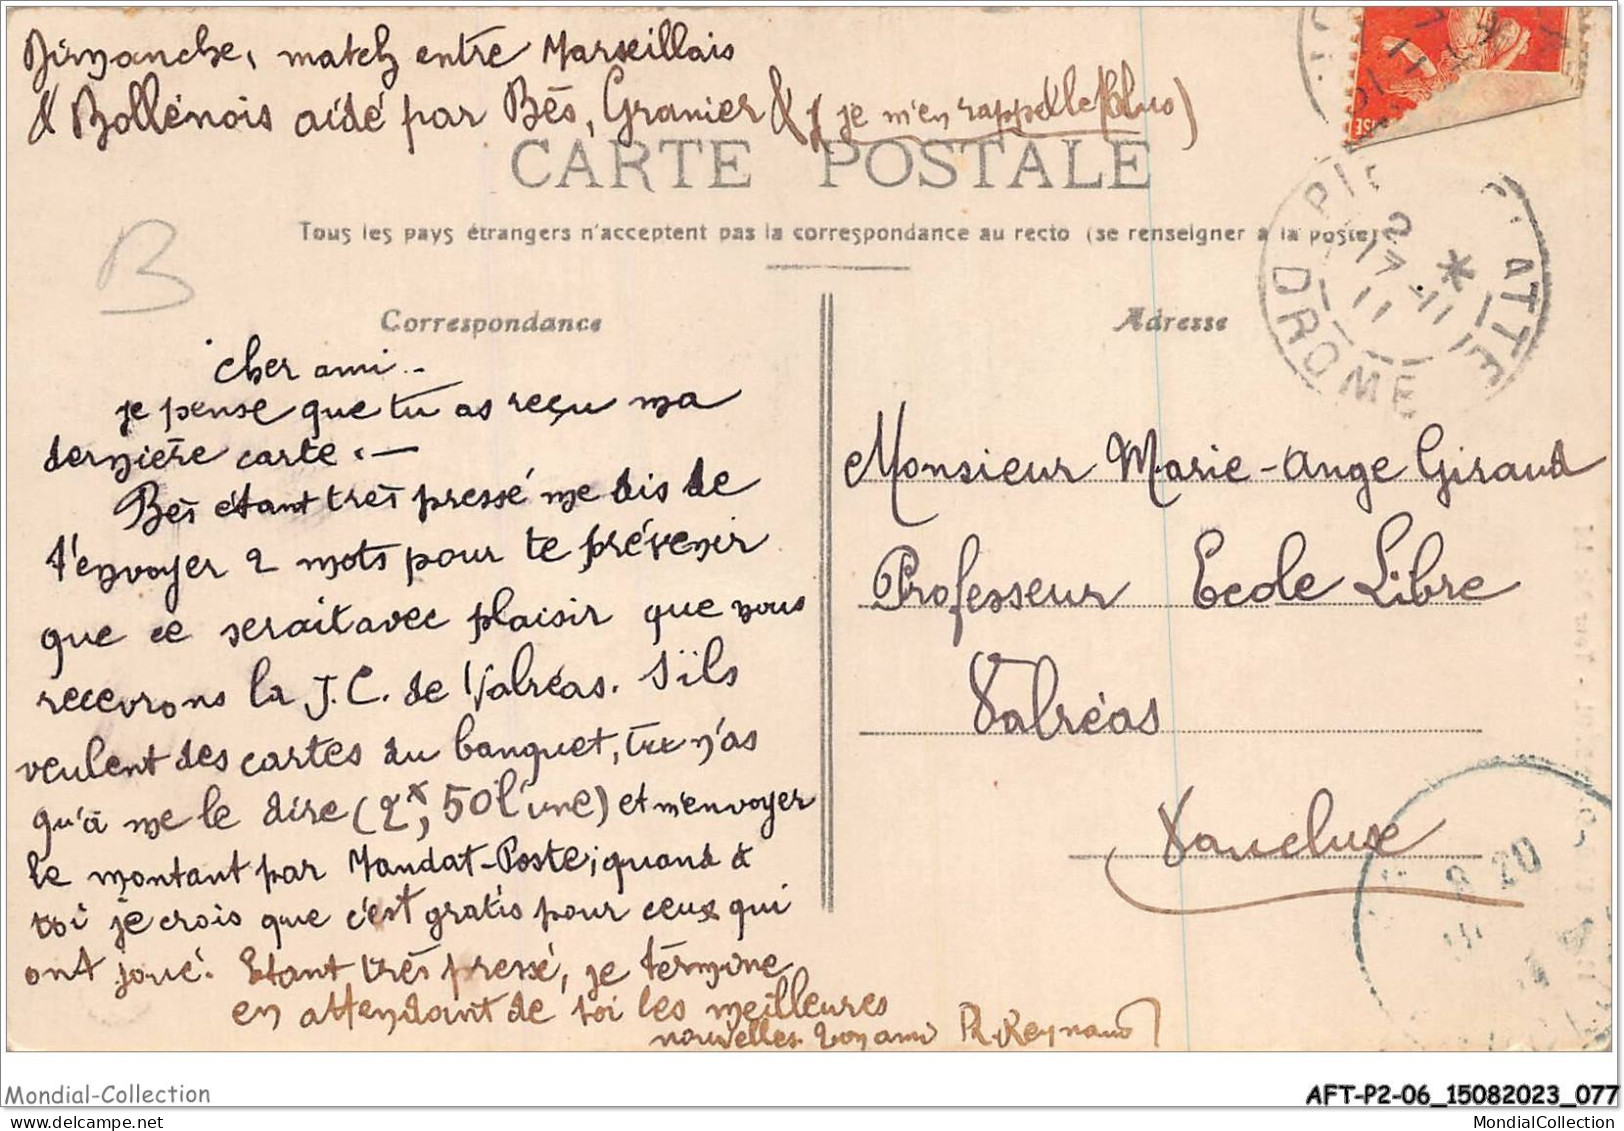 Dimanche, match entre Marseillais
& Bollénois aidé par Bès, Granier & (je m'en rappelle plus)
CARTE POSTALE
Tous les pays étrangers n'acceptent pas la correspondance au recto (se renseigner à la poste)
B
Correspondance
Adresse
DROME
2
17-11
11
cher ami..
je pense que tu as reçu ma
dernière carte. —
Bès étant très pressé me dis de
t'envoyer 2 mots pour te prévenir
que ce serait avec plaisir que nous
recevrons la J.C. de Valréas. S'ils
veulent des cartes du banquet, tu n'as
qu'à me le dire (2f, 50 l'une) et m'envoyer
le montant par Mandat-Poste; quand à
toi je crois que c'est gratis pour ceux qui
ont joué. Etant très pressé, je termine
en attendant de toi les meilleures
nouvelles. Ton ami Ph. Reynaud
Monsieur Marie-Ange Giraud
Professeur Ecole Libre
Valréas
Vaucluse
8 20
Mondial-Collection
AFT-P2-06_15082023_077
MondialCollection.com